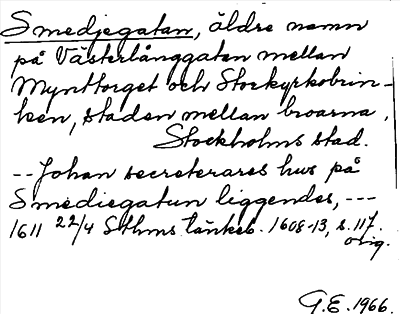 Smedjegatan, äldre namn
på Västerlånggatan mellan
Mynttorget och Storkyrkobrin-
ken, staden mellan broarna,
Stockholms stad.
-- Johan secreterares hus på
Smediegatun liggendes, ---
1611 22/4 Sthms tänkeb. 1608-13, s. 117.
orig.
G.E. 1966.